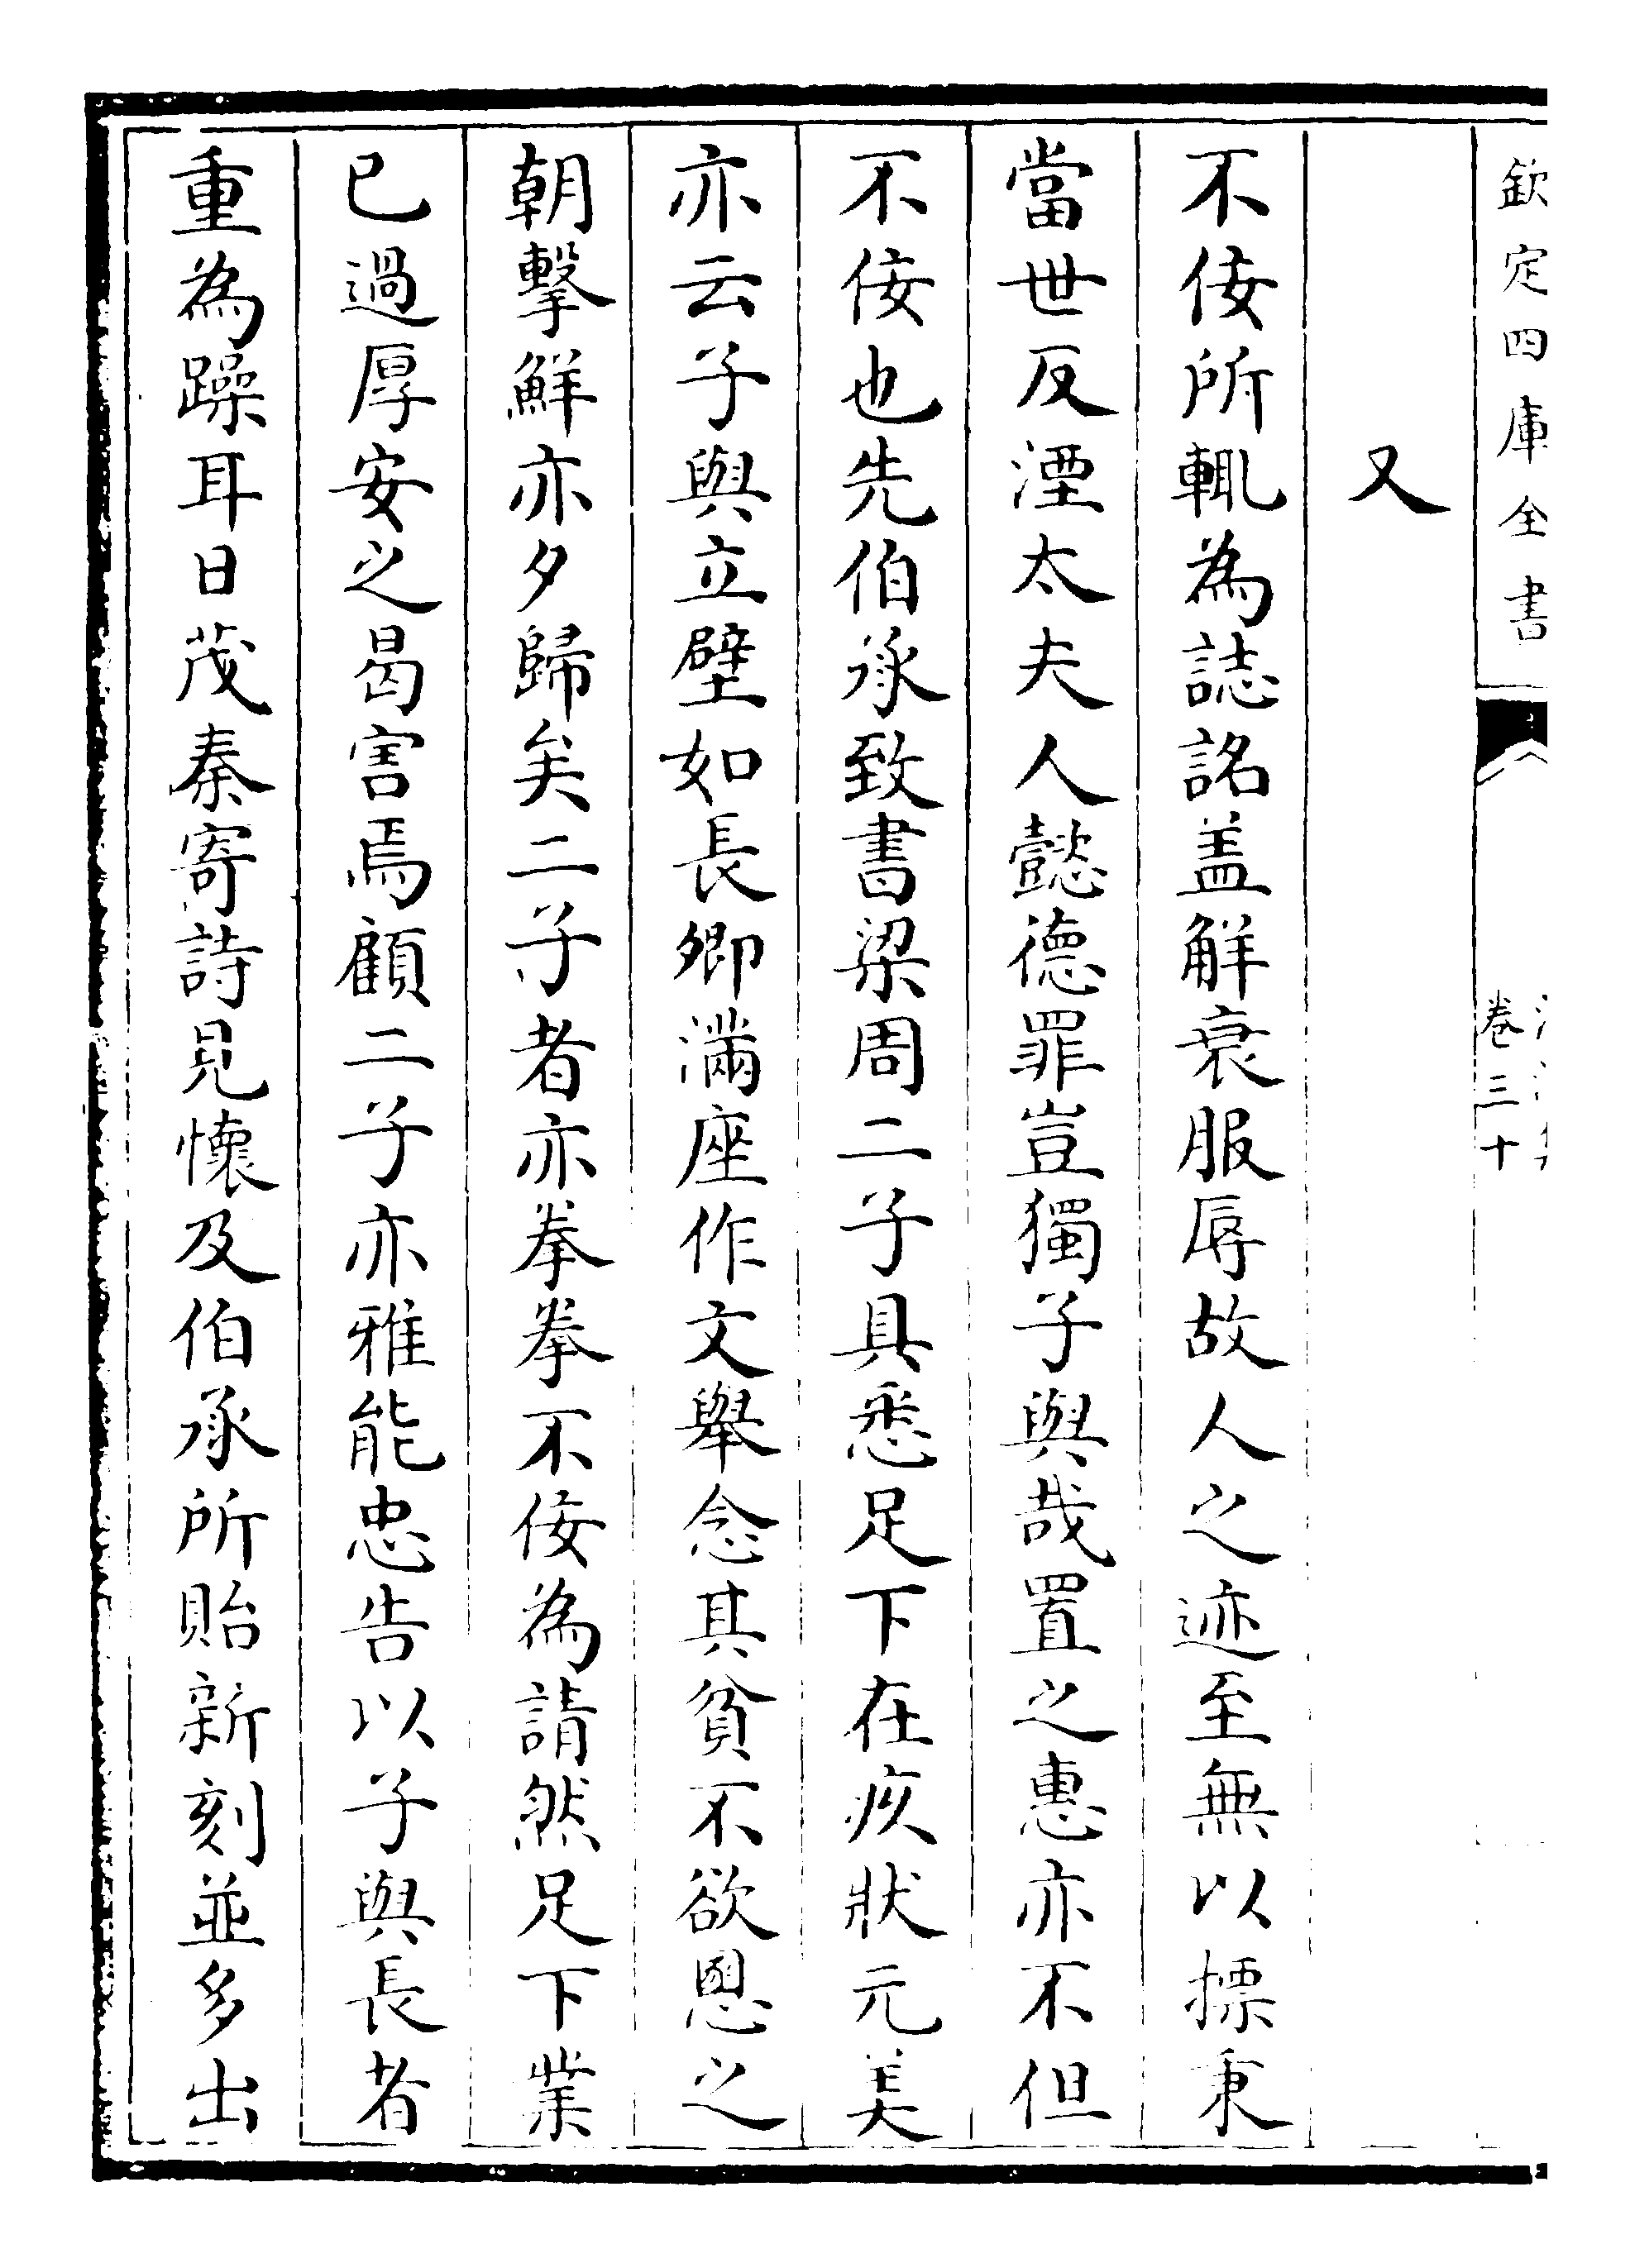 欽定四庫全書
卷三十
又
不佞所輒為誌銘盖解衰服辱故人之迹至無以摽秉
當世反湮太夫人懿德罪豈獨子與哉置之惠亦不但
不佞也先伯承致書梁周二子具悉足下在疚狀元美
亦云子與立壁如長卿滿座作文舉念其貧不欲恩之
朝擊鮮亦夕歸矣二子者亦拳拳不佞為請然足下業
已過厚安之曷害焉顧二子亦雅能忠告以子與長者
重為躁耳日茂秦寄詩見懷及伯承所貽新刻並多出